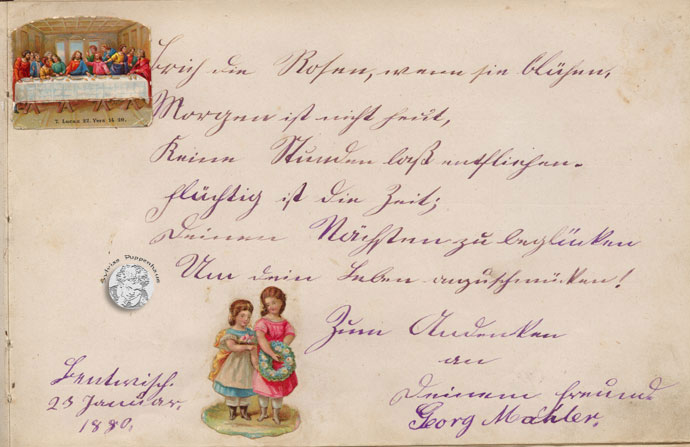 Brich die Rosen, wenn sie blühen,
Morgen ist nicht heut,
Keine Stunden laß entfliehen.
flüchtig ist die Zeit;
Deinen Nächsten zu beglücken
Um dein Leben auszuschmücken!
Zum Andenken
an
Deinem Freund
Georg Mahler.
Bentwisch.
23 Januar.
1880.
Lucas 22. Vers 14-20.
Puppenhaus